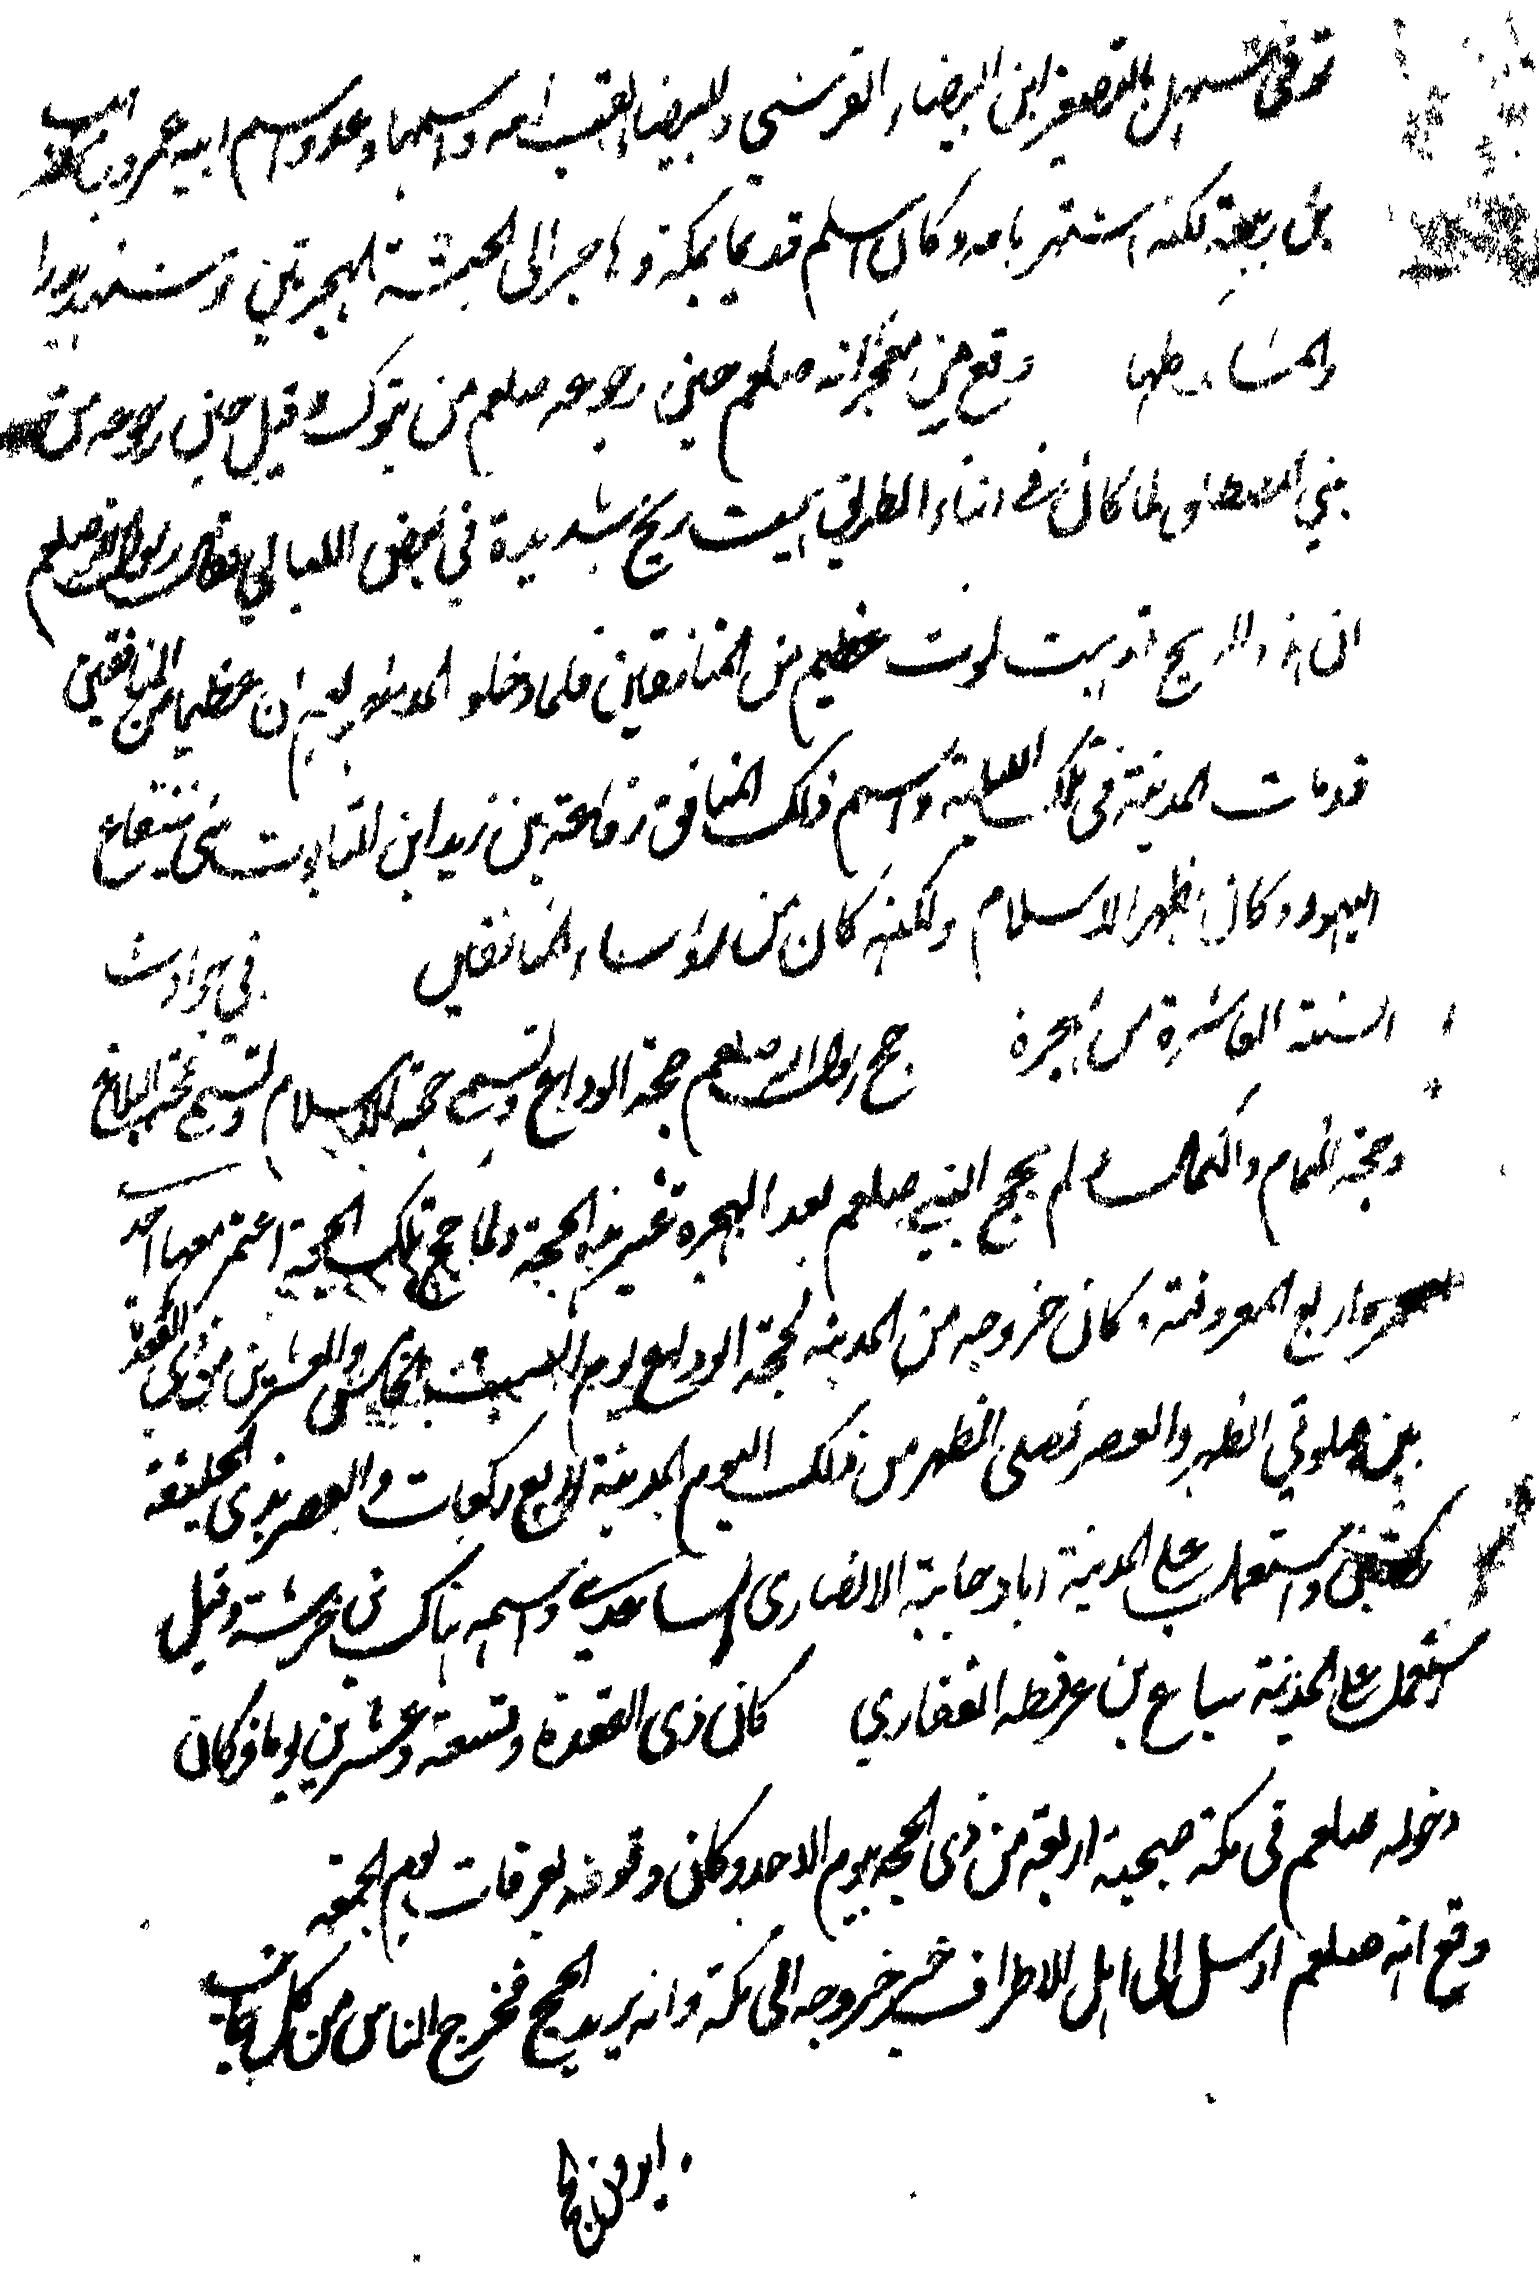 توفى سهيل بالتصغير ابن البيضاء القرشي والبيضاء لقب امه واسمها دعد واسم ابيه عمرو بن
بن ربيعة لكنه اشتهر بامه وكان اسلم قديما بمكة وهاجر الى الحبشة الهجرتين وشهد بدرا
والمشاهد كلها وقع من معجزاته صلعم حين رجوعه صلعم من تبوك وقيل حين رجوعه من
بني المصطلق لما كان في اثناء الطريق هبت ريح شديدة في بعض الليالي فقال رسول الله صلعم
ان هذه الريح قد هبت لموت عظيم من المنافقين فلما دخلوا المدينة ان عظيما من المنافقين
قد مات المدينة في تلك الليلة واسم ذلك المنافق رفاعة بن زيد ابن التابوت من بني قينقاع
اليهود وكان يظهر الاسلام ولكنه كان من رؤساء المنافقين في حوادث
السنة العاشرة من الهجرة حج رسول الله صلعم حجة الوداع وتسمى حجة الاسلام وتسمى حجة البلاغ
وحجة التمام والكمال ولم يحج النبي صلعم بعد الهجرة غير هذه الحجة ولما حج تلك الحجة اعتمر معها احد
عمره اربع المعروفة وكان خروجه من المدينة لحجة الوداع يوم السبت الخامس والعشرين من ذي القعدة
بين صلوتي الظهر والعصر فصلى الظهر من ذلك اليوم المدينة اربع ركعات والعصر بذى الحليفة
ركعتين واستعمل على المدينة ابا دجانة الانصارى الساعدي واسمه سماك بن خرشة وقيل
استعمل على المدينة سباع بن عرفطه الغفاري كان ذى القعدة وتسعة وعشرين يوما وكان
دخوله صلعم فى مكة صبحية اربعة من ذى الحجه يوم الاحد وكان وقوفه بعرفات يوم الجمعه
وقع انه صلعم ارسل الى اهل الاطراف خبر خروجه الى مكة وانه يريد الحج فخرج الناس من كل جانب